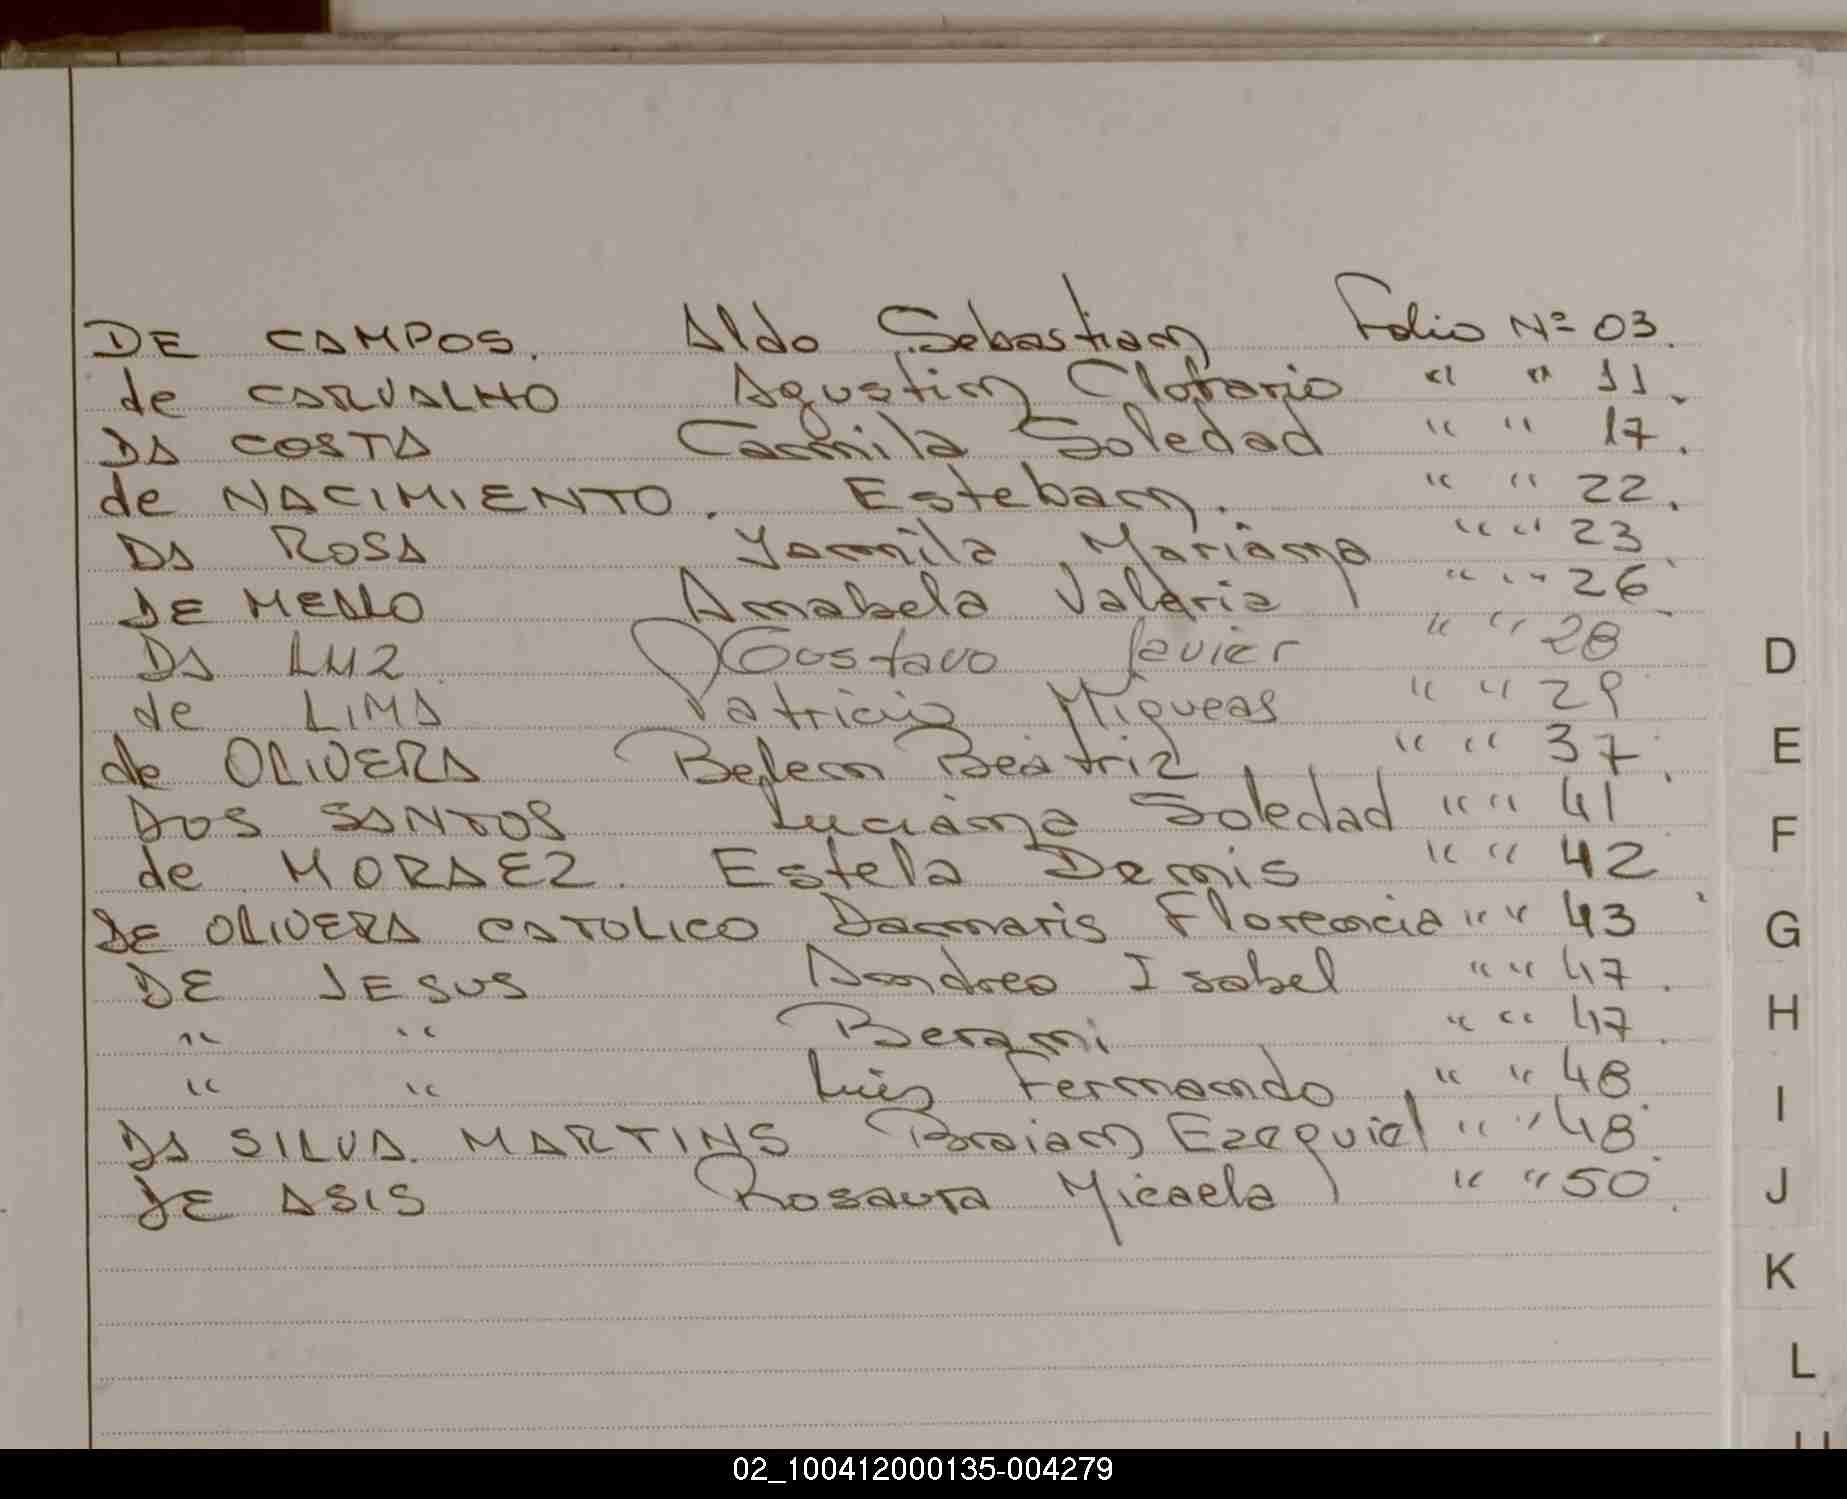 DE CAMPOS. Aldo Sebastian Folio Nº 03.
de CARVALHO Agustin Clotario " " 11.
DA COSTA Camila Soledad " " 17.
de NACIMIENTO. Esteban. " " 22.
DA ROSA Yamila Mariana " " 23.
DE MELLO Anabela Valeria " " 26.
DA LUZ Gustavo Javier " " 28
de LIMA Patricio Miqueas " " 29
de OLIVERA Belen Beatriz " " 37.
DOS SANTOS Luciana Soledad " " 41
de MORAEZ. Estela Denis " " 42
DE OLIVERA CATOLICO Damaris Florencia " " 43
DE JESUS Andrea Isabel " " 47.
" " " " 47.
" " Luis Fernando " " 48
DA SILVA MARTINS Braian Ezequiel " " 48.
DE ASIS Rosaura Micaela " " 50.
D
E
F
G
H
I
J
K
L
02_100412000135-004279